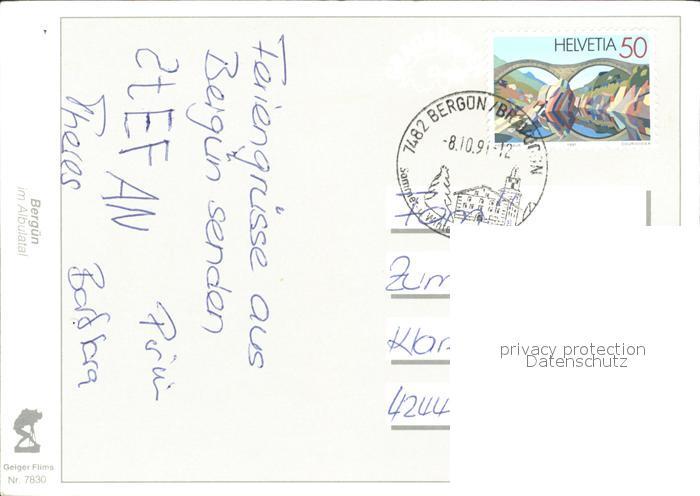 Feriengrüsse aus
Bergün senden
STEFAN
Theres
Barbara
HELVETIA 50
1991
7482 BERGÜN/BRAVUOGN
-8.10.91-12
Zum
4244
privacy protection
Datenschutz
Bergün
im Albulatal
Geiger Flims
Nr. 7830